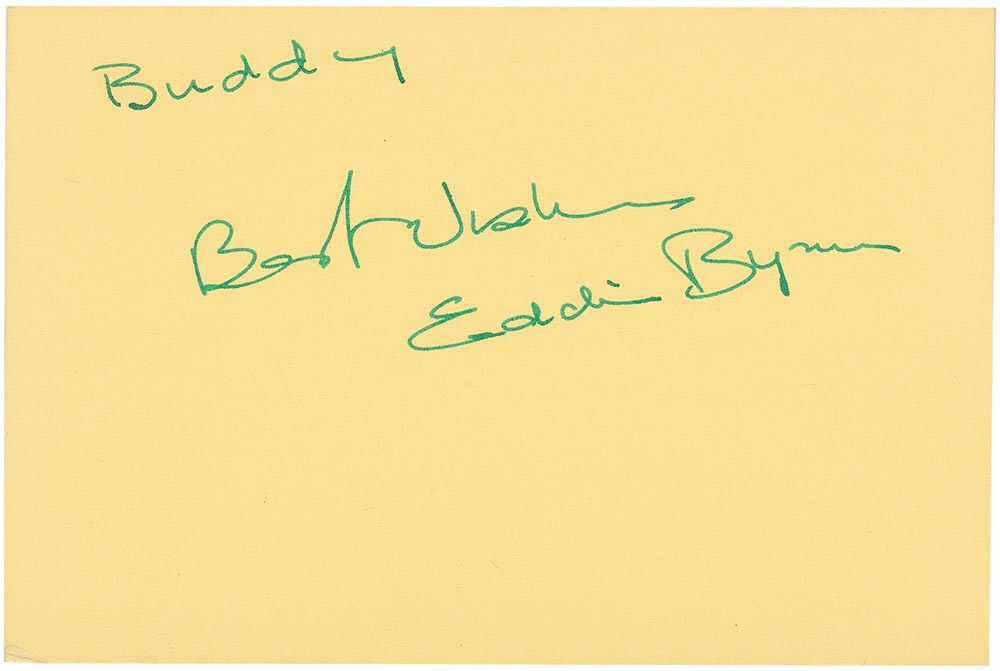 Buddy
Best Wishes
Eddie Byrne